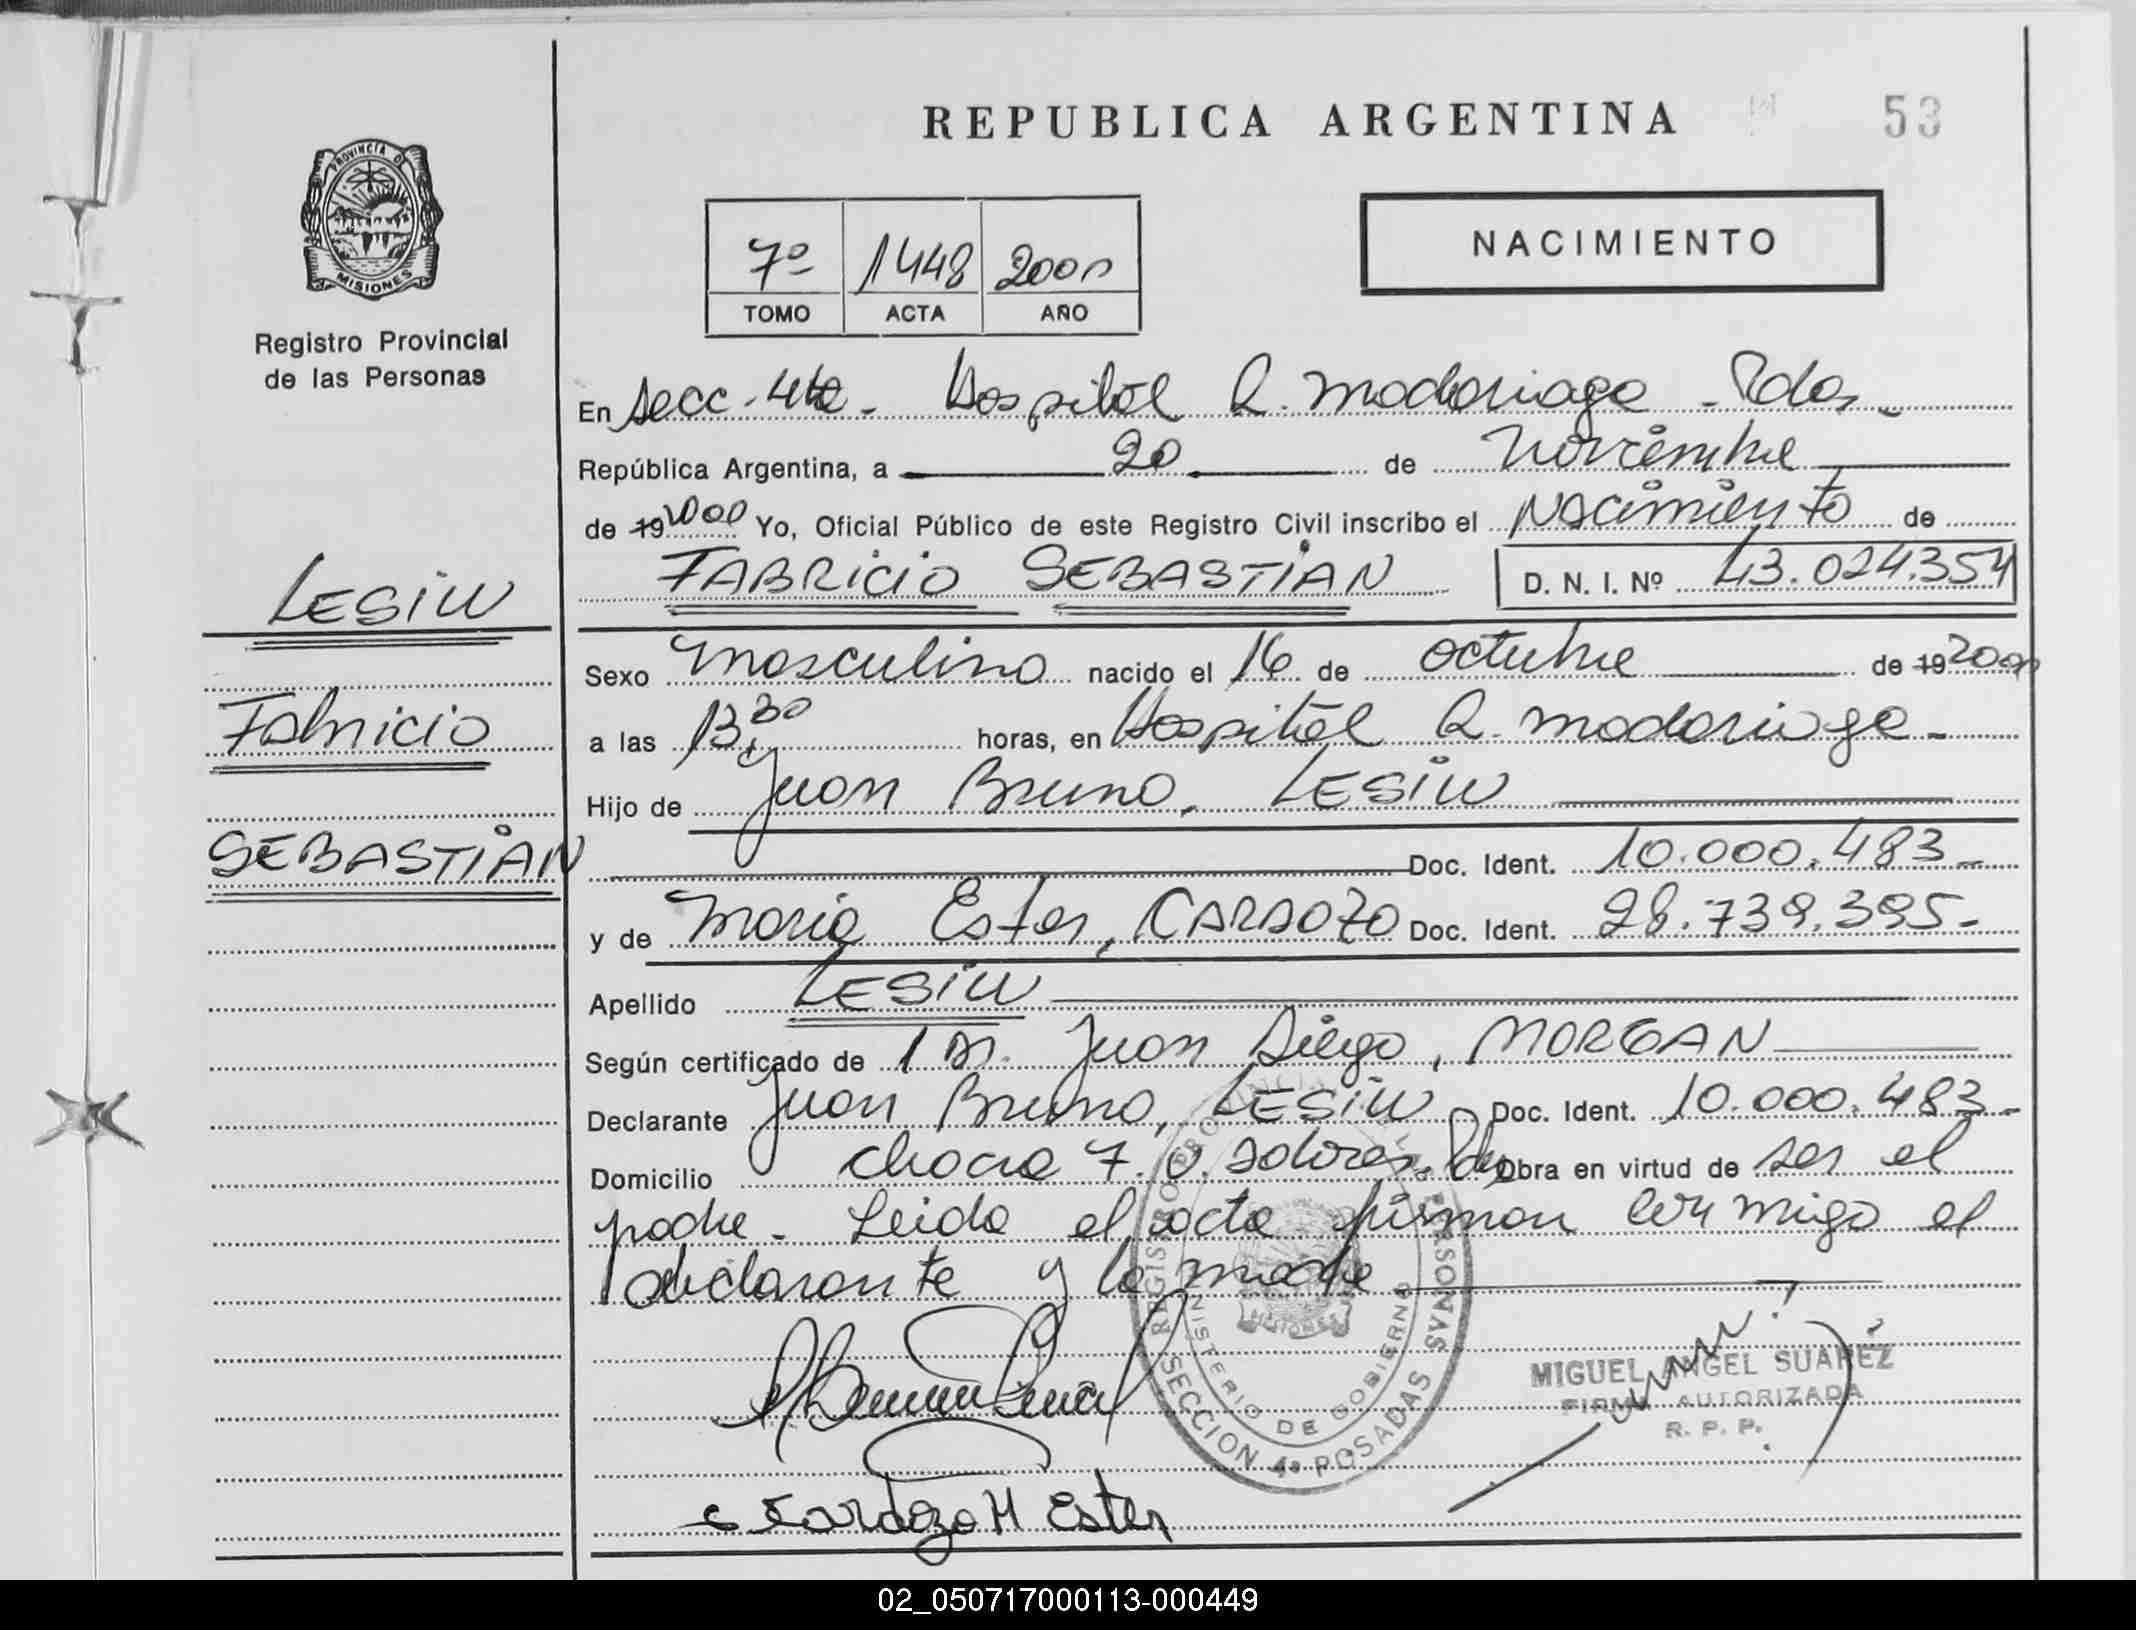 REPUBLICA ARGENTINA
53
PROVINCIA D
MISIONES
Registro Provincial
de las Personas
NACIMIENTO
7º 1448 2000
TOMO ACTA AÑO
En Secc. 4ta. Hospital R. Madariaga - Pdas -
República Argentina, a 20 de Noviembre
de 19 2000 Yo, Oficial Público de este Registro Civil inscribo el Nacimiento de
FABRICIO SEBASTIAN D. N. I. Nº 43.024.354
LESIW
Fabricio
SEBASTIAN
Sexo Masculino nacido el 16 de octubre de 19 2000
a las 13,30 horas, en Hospital R. Madariaga -
Hijo de Juan Bruno, LESIW
Doc. Ident. 10.000.483 -
y de Maria Ester, CARDOZO Doc. Ident. 28.739.395 -
Apellido LESIW
Según certificado de Dr. Juan Diego, MORGAN
Declarante Juan Bruno, LESIW Doc. Ident. 10.000.483 -
Domicilio chacra 7. V. Dolores. Pdas Obra en virtud de ser el
padre - Leida el acta firman conmigo el
declarante y la madre
REGISTRO PROVINCIAL DE LAS PERSONAS
MINISTERIO DE GOBIERNO
MISIONES
SECCION 4ª POSADAS
MIGUEL ANGEL SUAREZ
FIRMA AUTORIZADA
R. P. P.
Cardozo M Ester
02_050717000113-000449